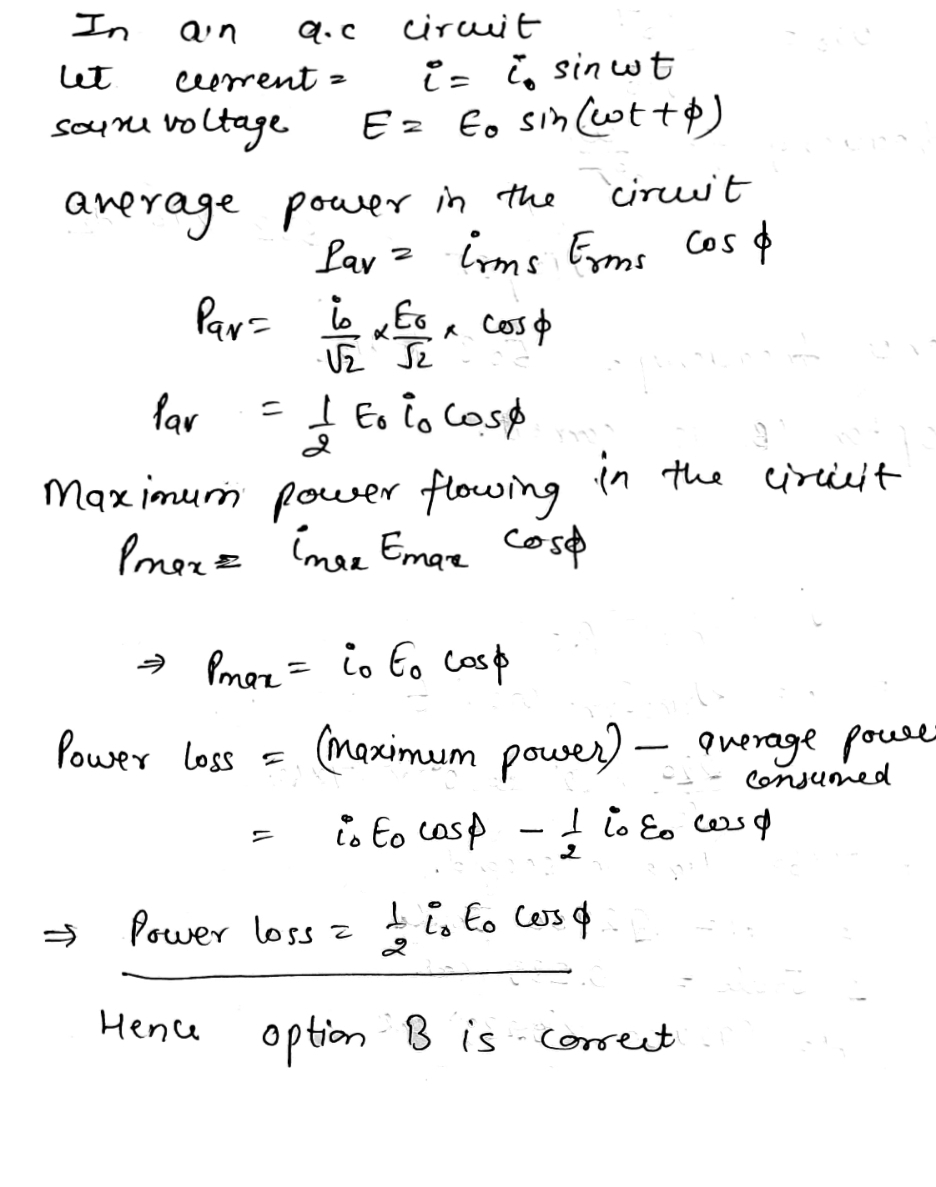 In an a.c circuit
let current = i = i₀ sin ωt
source voltage E = E₀ sin(ωt + φ)
average power in the circuit
Pav = irms Erms cos φ
Pav = i₀/√2 × E₀/√2 × cos φ
Pav = 1/2 E₀ i₀ cos φ
Maximum power flowing in the circuit
Pmax = imax Emax cos φ
⇒ Pmax = i₀ E₀ cos φ
Power loss = (Maximum power) – average power
consumed
= i₀ E₀ cos φ – 1/2 i₀ E₀ cos φ
⇒ Power loss = 1/2 i₀ E₀ cos φ
Hence option B is correct